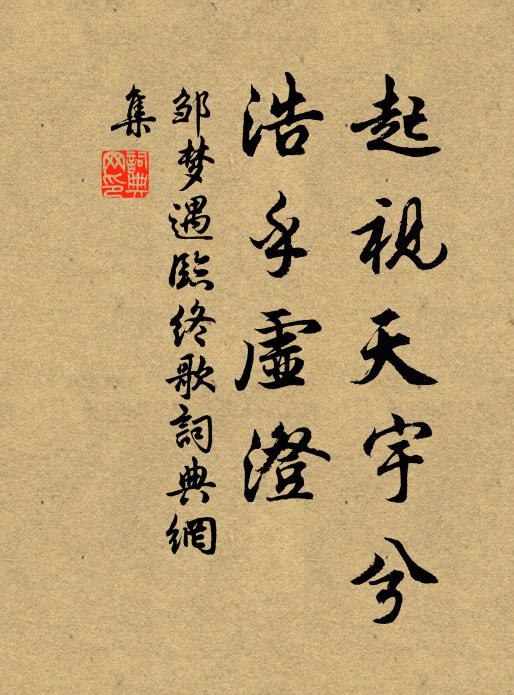 起視天宇兮
浩乎虛澄
邹梦遇臨终歌詞典網
集
詞典
网印